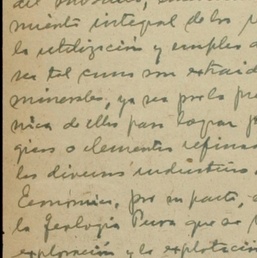 del
miento integral de los
la utilización y empleo d
sea tal como son extraid
minerales, ya sea por la pre
nica de ellos para lograr p
gicos o elementos refinad
las diversas industrias.
Económica, por su parte, a
la Geología Pura que se
exploración y la explotación